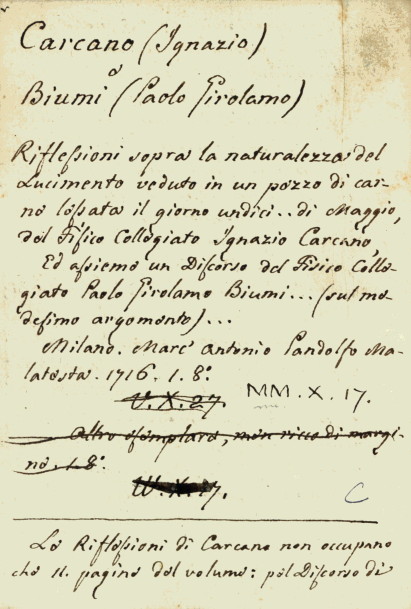 Carcano (Ignazio)
o
Biumi (Paolo Girolamo)
Riflessioni sopra la naturalezza del
Lucimento veduto in un pezzo di car-
ne lessata il giorno undici.. di Maggio,
del Fisico Collegiato Ignazio Carcano,
Ed assieme un Discorso del Fisico Colle-
giato Paolo Girolamo Biumi... (sul me-
desimo argomento)...
Milano. Marc' Antonio Pandolfo Ma-
latesta. 1716. 1. 8.°
V.X.27. MM.X.17.
Altro esemplare, men ricco di margi-
ne. 1. 8.°
W.X.17.
C
Le Riflessioni di Carcano non occupano
che 11. pagine del volume: pel Discorso di